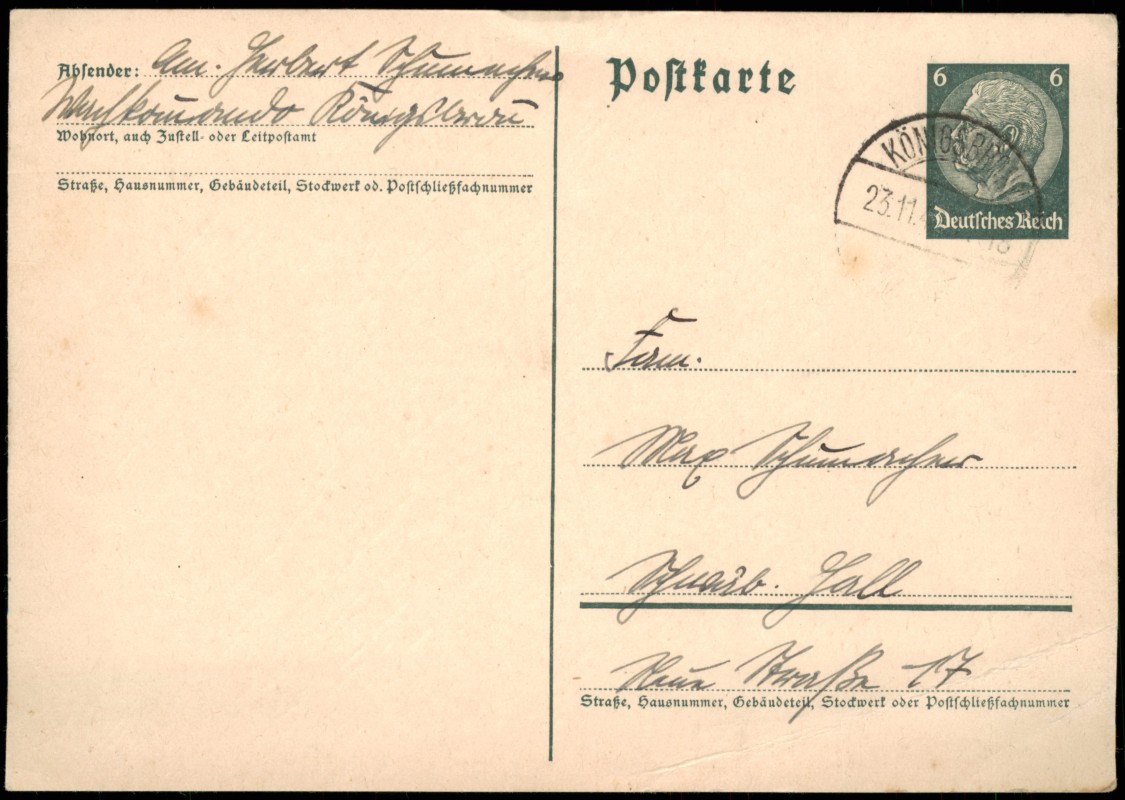 Absender: Herbert Schumacher
Wachkomando Königsbronn
Wohnort, auch Zustell- oder Leitpostamt
Straße, Hausnummer, Gebäudeteil, Stockwerk od. Postschließfachnummer
Postkarte
6 6
Deutsches Reich
KÖNIGSBR
23.11.4
Fam.
Max Schumacher
Schwäb. Hall
Neue Straße 17
Straße, Hausnummer, Gebäudeteil, Stockwerk oder Postschließfachnummer